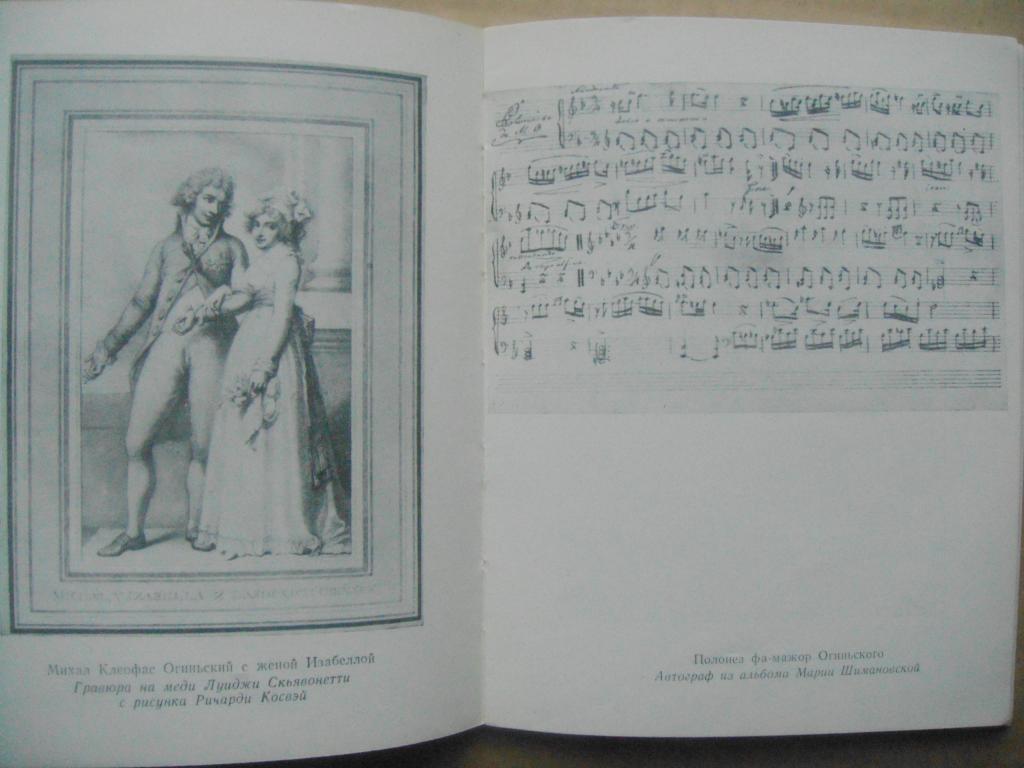 Михал Клеофас Огиньский с женой Изабеллой
Гравюра на меди Луиджи Скьявонетти
с рисунка Ричарди Косвэй
Полонез фа-мажор Огиньского
Автограф из альбома Марии Шимановской